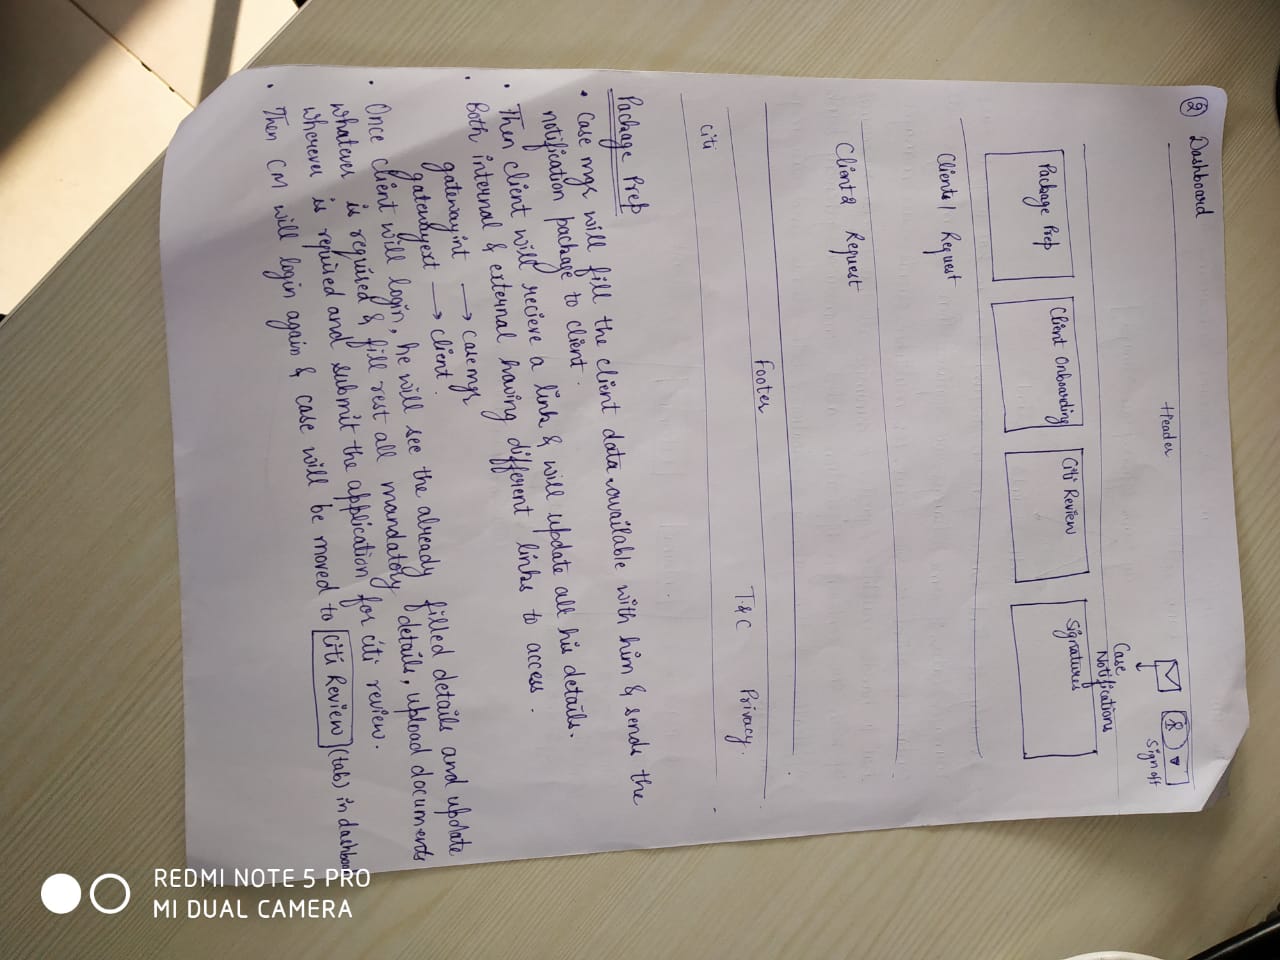 ② Dashboard
Header
Sign off
Case
Notifications
Package Prep
Client Onboarding
Citi Review
Signatures
Client1 Request
Client2 Request
Footer
citi
T & C
Privacy.
Package Prep
• Case mgr will fill the client data available with him & sends the
notification package to client.
• Then client will recieve a link & will update all his details.
• Both internal & external having different links to access.
gatewayint → case mgr
gatewayext → client.
• Once client will login, he will see the already filled details and update
whatever is required & fill rest all mandatory details, upload documents
wherever is required and submit the application for citi review.
• Then CM will login again & case will be moved to Citi Review (tab) in dashboard
REDMI NOTE 5 PRO
MI DUAL CAMERA